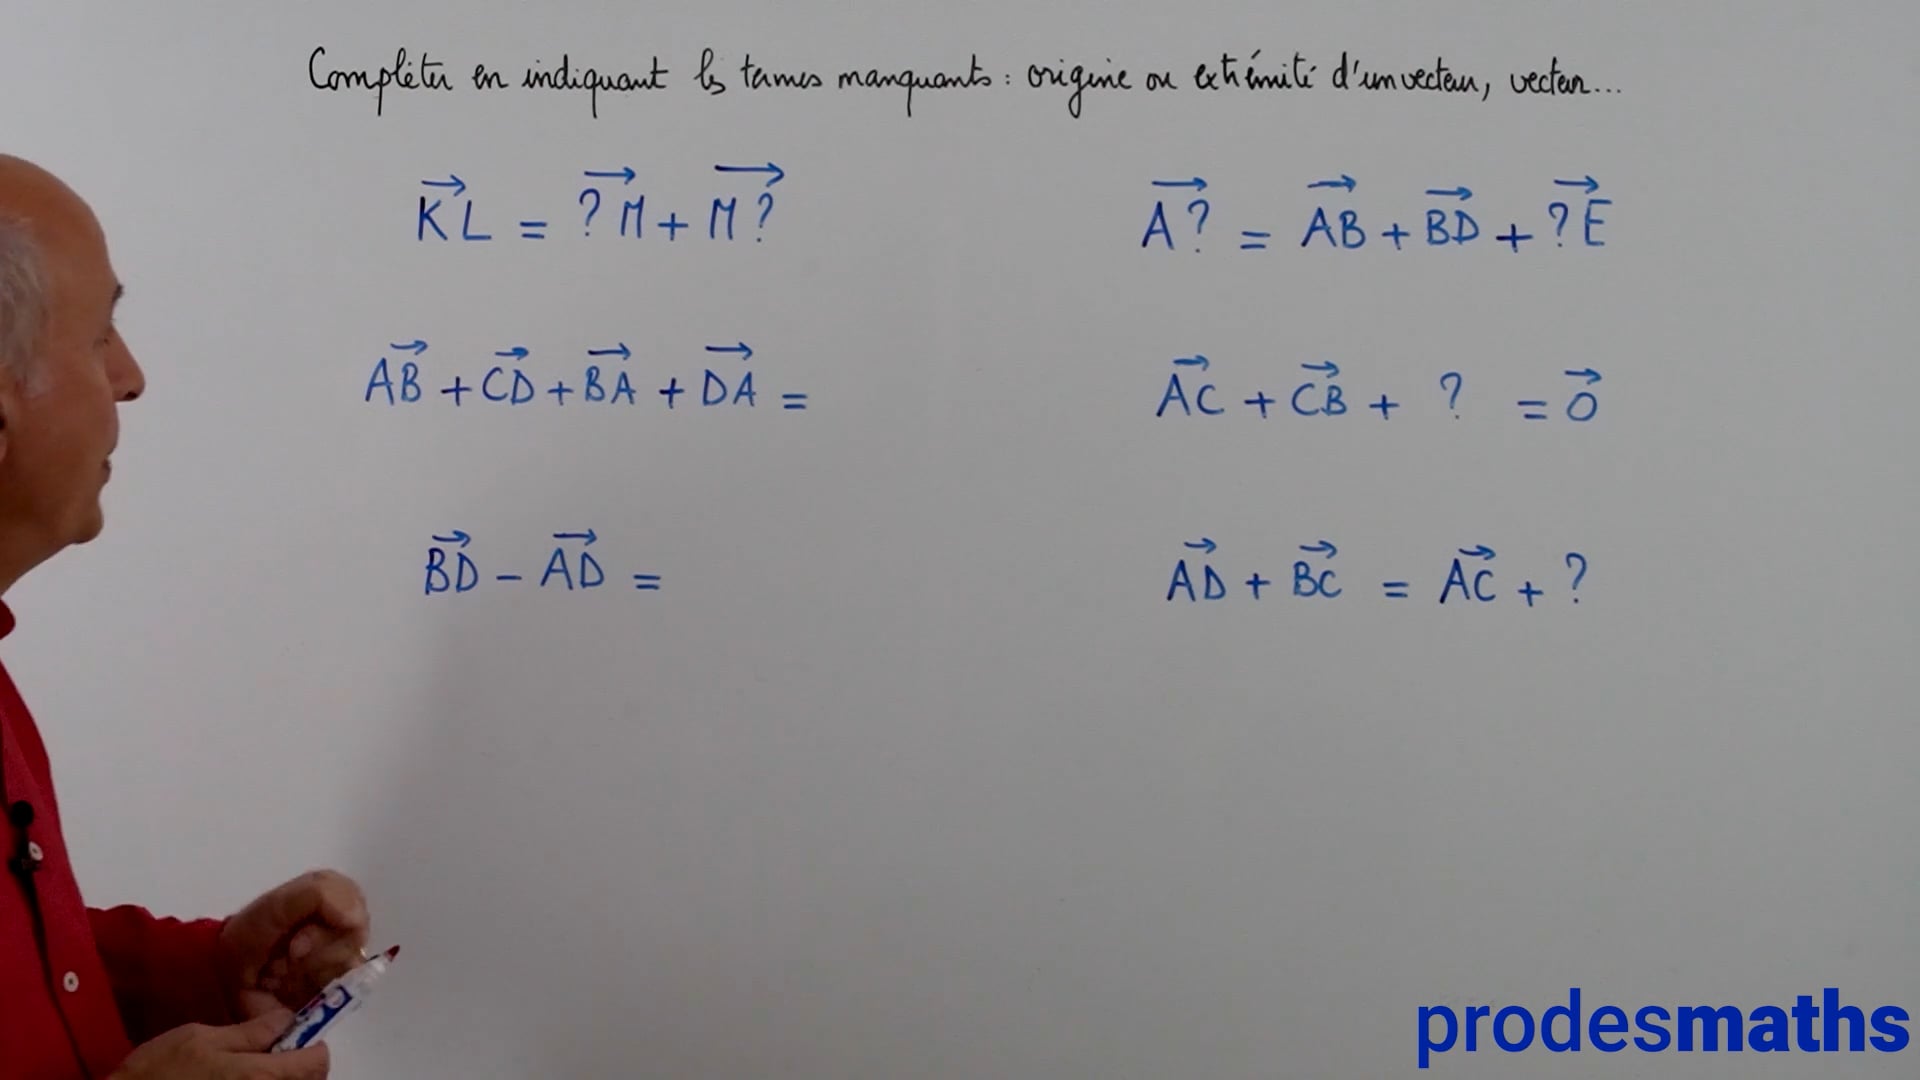 Compléter en indiquant les termes manquants : origine ou extrémité d'un vecteur, vecteur...
KL = ?M + M?
A? = AB + BD + ?E
AB + CD + BA + DA =
AC + CB + ? = 0
BD - AD =
AD + BC = AC + ?
prodesmaths